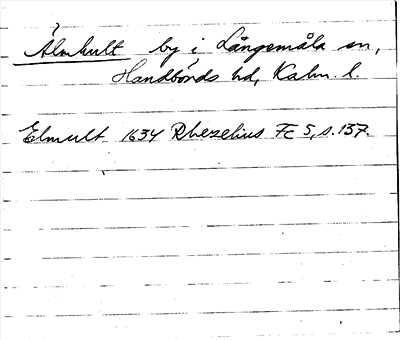 Älmhult by i Långemåla sn,
Handbörds hd, Kalm. l.
Elmult 1634 Rhezelius Fc 5, s. 137.